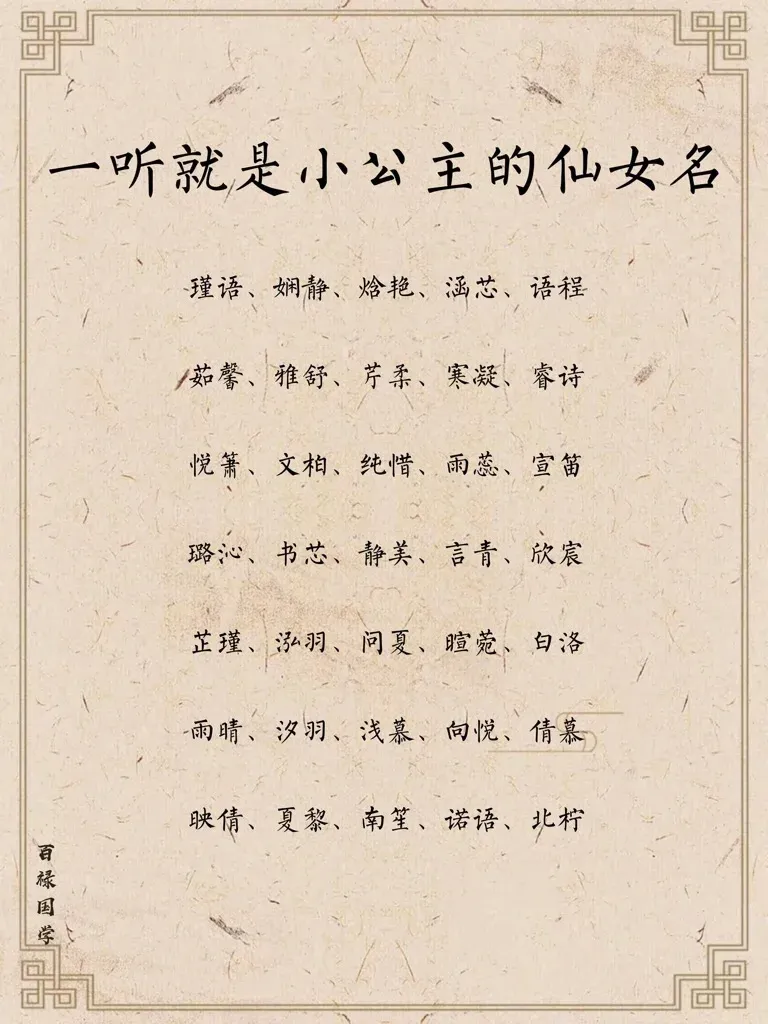 一听就是小公主的仙女名
瑾语、娴静、焓艳、涵芯、语程
茹馨、雅舒、芹柔、寒凝、睿诗
悦箫、文柏、纯惜、雨蕊、宣笛
璐沁、书芯、静美、言青、欣宸
芷瑾、泓羽、问夏、暄菀、白洛
雨晴、汐羽、浅慕、向悦、倩慕
映倩、夏黎、南笙、诺语、北柠
百禄国学